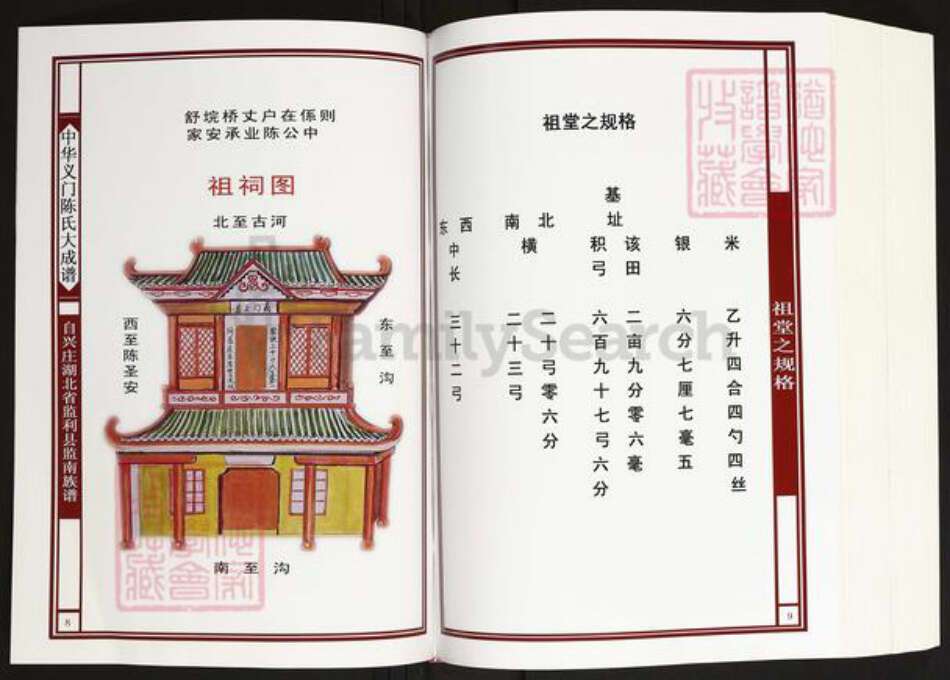 中华义门陈氏大成谱
自兴庄湖北省监利县监南族谱
8
舒垸桥丈户在係则
家安承业陈公中
祖祠图
北至古河
西至陈圣安
东至沟
南至沟
祖堂之规格
米 乙升四合四勺四丝
银 六分七厘七毫五
基址
该田 二亩九分零六毫
积弓 六百九十七弓六分
北 二十弓零六分
横
南 二十三弓
西
中长 三十二弓
东
祖堂之规格
9
FamilySearch